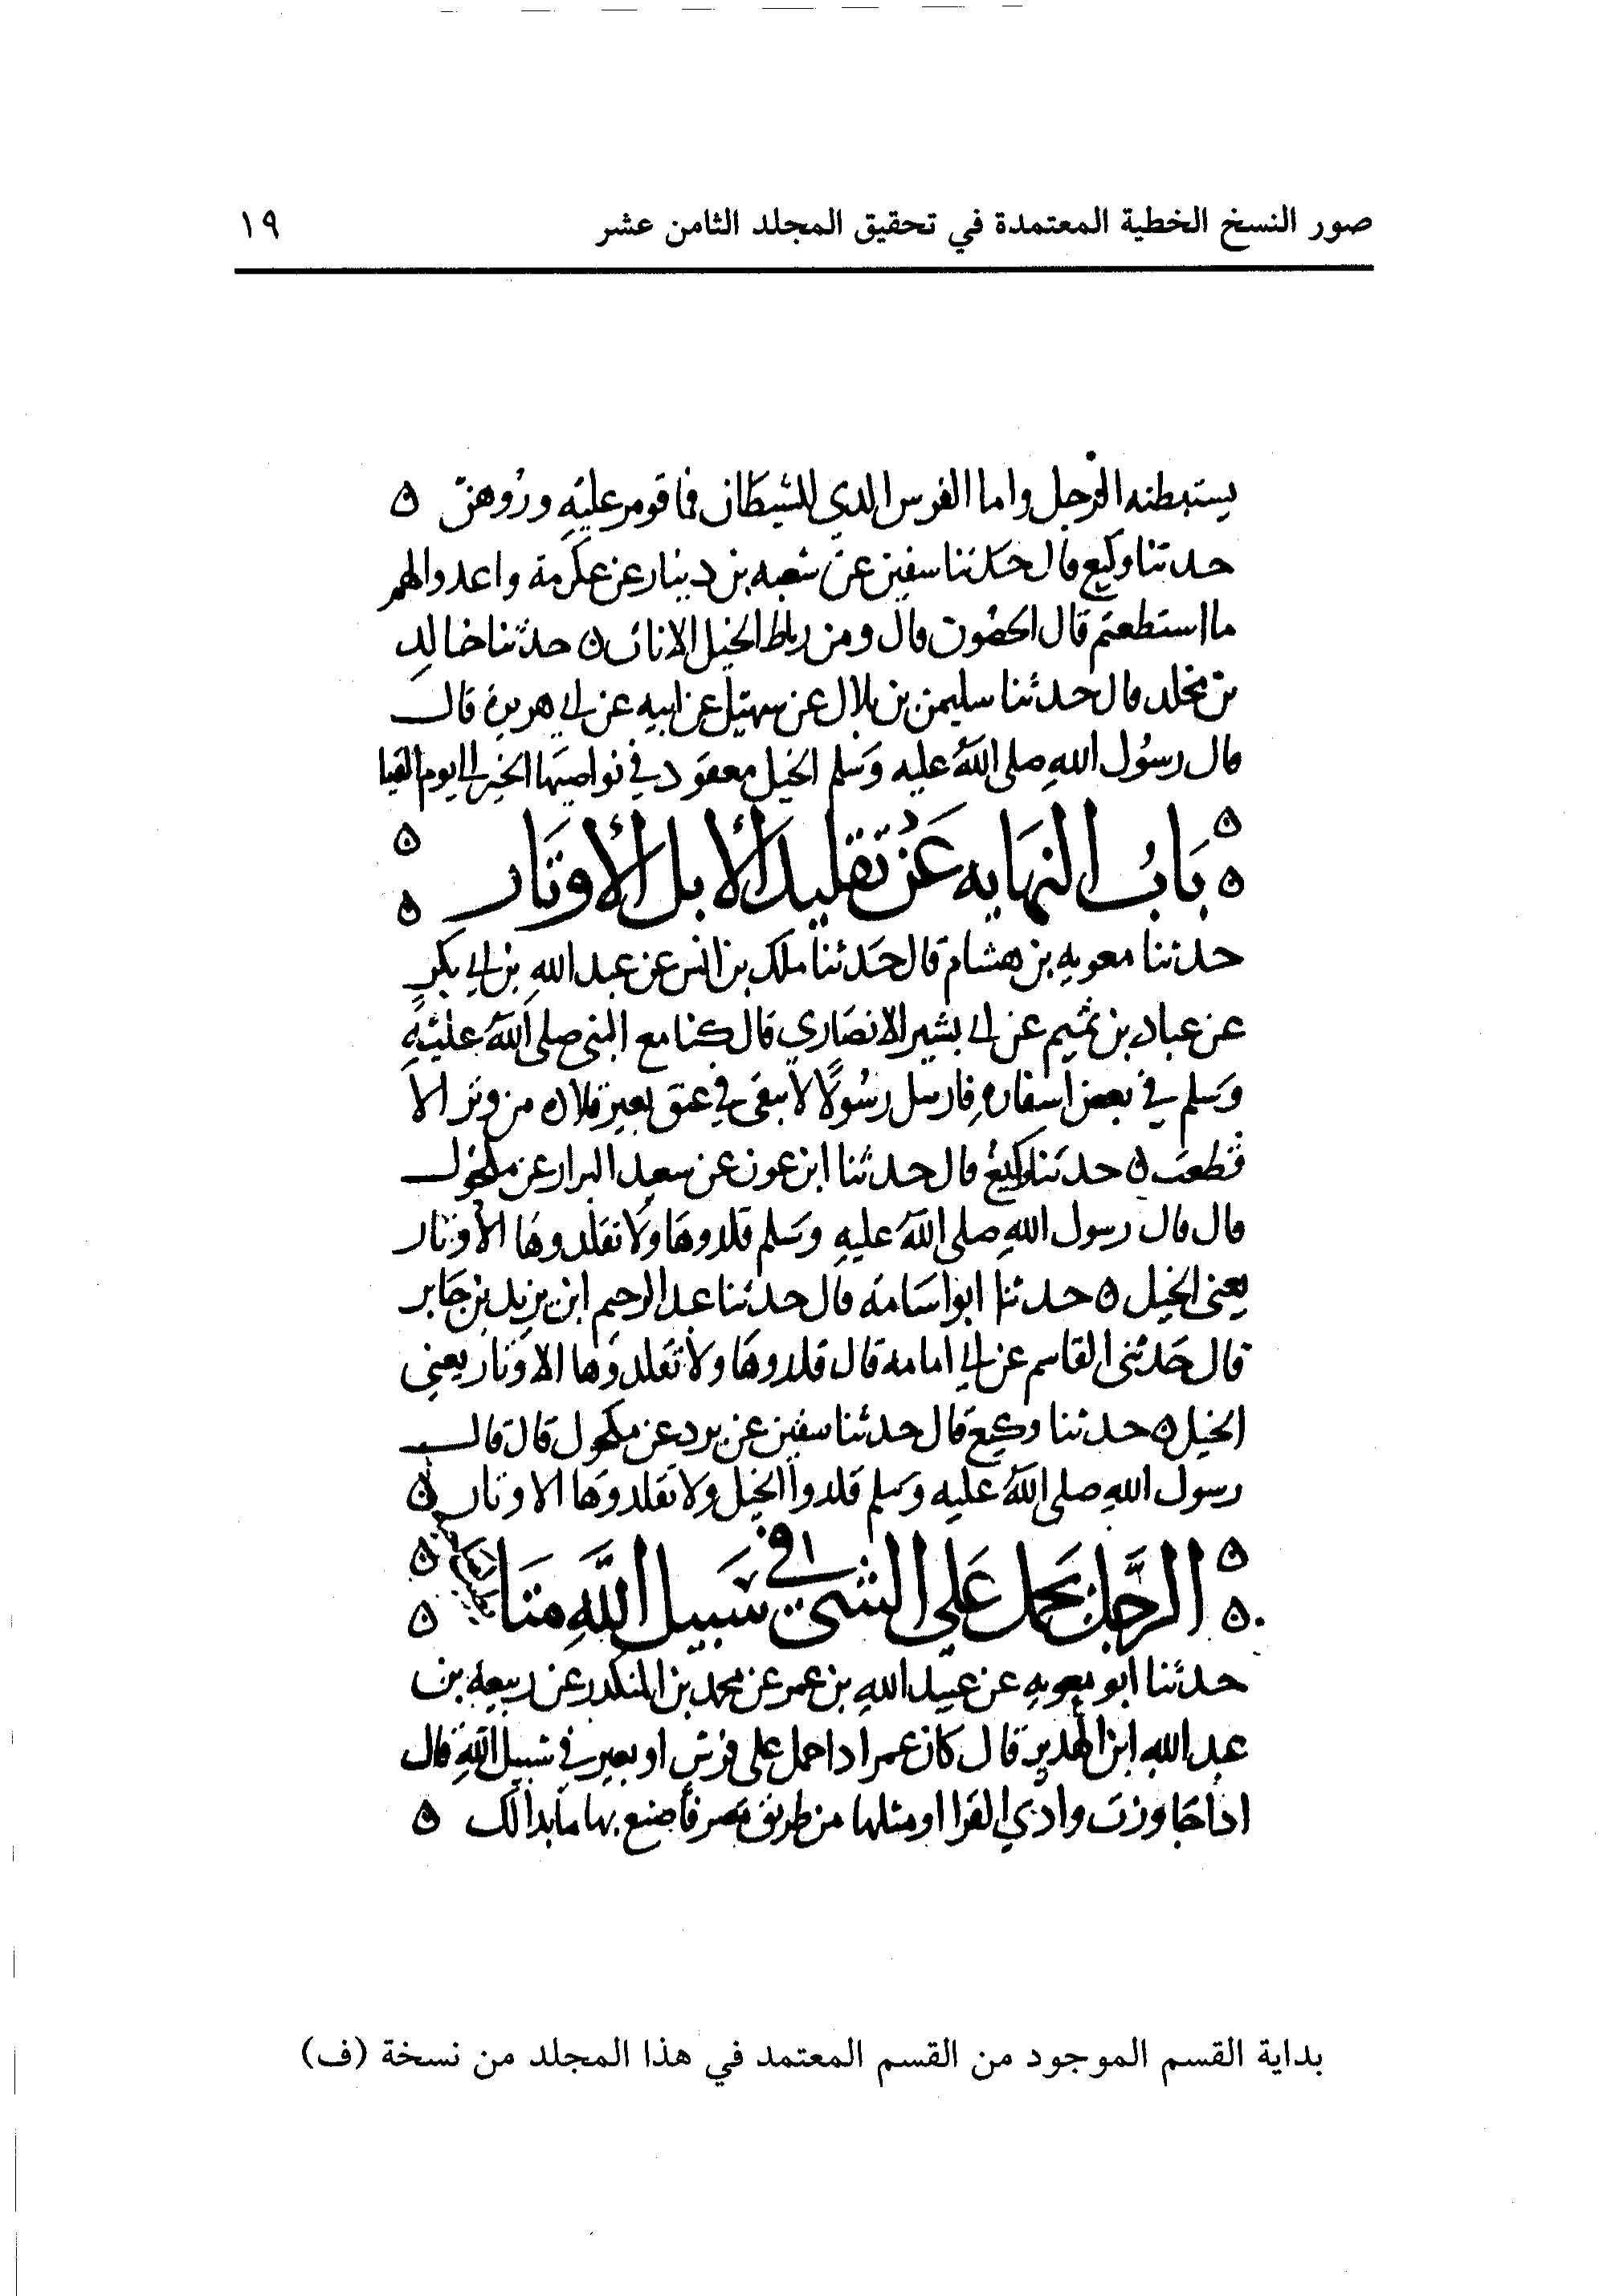 صور النسخ الخطية المعتمدة في تحقيق المجلد الثامن عشر ١٩
يستبطنه الرجل واما الفرس الدي للشيطان فما قومر عليه ورُوهن ن
حدثنا وكيع قال حدثنا سفين عن شعبه بن دينار عن عكرمة واعدوا لهم
ما استطعتم قال الحصُون قال ومن رباط الخيل الاناث ن حدثنا خالد
بن مخلد قال حدثنا سليمن بن بلال عن سهيل عن ابيه عن ابي هريرة قال
قال رسُول اللهِ صلى اللهُ عليه وَسلم الخيل معقود في نواصيها الخير الي يوم القيا
ن بَابُ النهايه عَن تقليد الأبل الأوتَار ن
حدثنا معويه بن هشام قال حَدثنا ملك بن انس عن عبد الله بن ابي بكر
عن عباد بن تميم عن ابي بشير الانصَاري قال كنا مع النبي صلى اللهُ عليهِ
وَسلم في بعض اسفارهِ فارسل رسُولًا لا يبقى في عنق بعير قلاده من وتر الا
قطعت ن حدثنا وكيعُ قال حدثنا ابن عون عن سعيد البرار عن مكحول
قال قال رسول اللهِ صلى اللهُ عليهِ وَسَلم قلدوهَا وَلا تقلدوهَا الأوتار
يعني الخيل ن حدثنا ابو اسَامة قال حدثنا عبد الرحيم ابن يزيد بن جَابر
قال حَدثني القاسم عن ابي امامه قال قلدوهَا ولا تقلدوهَا الاوتار يعني
الخيل ن حدثنا وكيع قال حدثنا سفين عن برد عن مكحول قال قال
رسول اللهِ صلى اللهُ عليهِ وَسلم قلدوا الخيل ولا تقلدوهَا الاوتار ن
ن الرجُل يحمل عَلي الشيئ في سَبيل اللهِ متَا ن
حدثنا ابو معويهِ عن عبيد اللهِ بن عمر عن محمد بن المنكدر عن ربيعه بن
عبد اللهِ ابن الهدير قال كان عمر ادا حمل على فرس او بعير في سَبيل اللهِ قال
ادا جَاوزت وادي القرا او مثلها من طريق مصر فأصنع بها ما بدا لك ن
بداية القسم الموجود من القسم المعتمد في هذا المجلد من نسخة (ف)